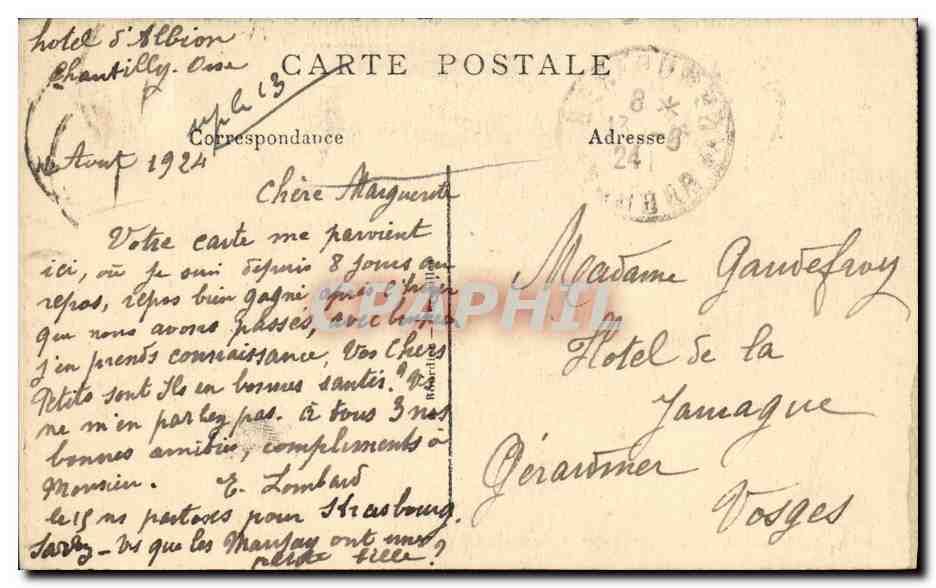 hotel d'Albion
Chantilly. Oise
CARTE POSTALE
le 13
Correspondance
Adresse
Aout 1924
8
24
Chère Marguerite
Votre carte me parvient
ici, où je suis depuis 8 jours au
repos, repos bien gagné après l'hiver
que nous avons passés, avec
j'en prends connaissance, Vos Chers
Petits sont Ils en bonnes santés? Vs
ne m'en parlez pas. à tous 3 nos
bonnes amitiés, compliments à
Monsieur. E. Lombard
le 15 ns partons pour Strasbourg.
Savez-vs que les ont une
petite fille?
Madame Gaudefroy
Hotel de la
Jamaque
Gérardmer
Vosges
CPAPHIL